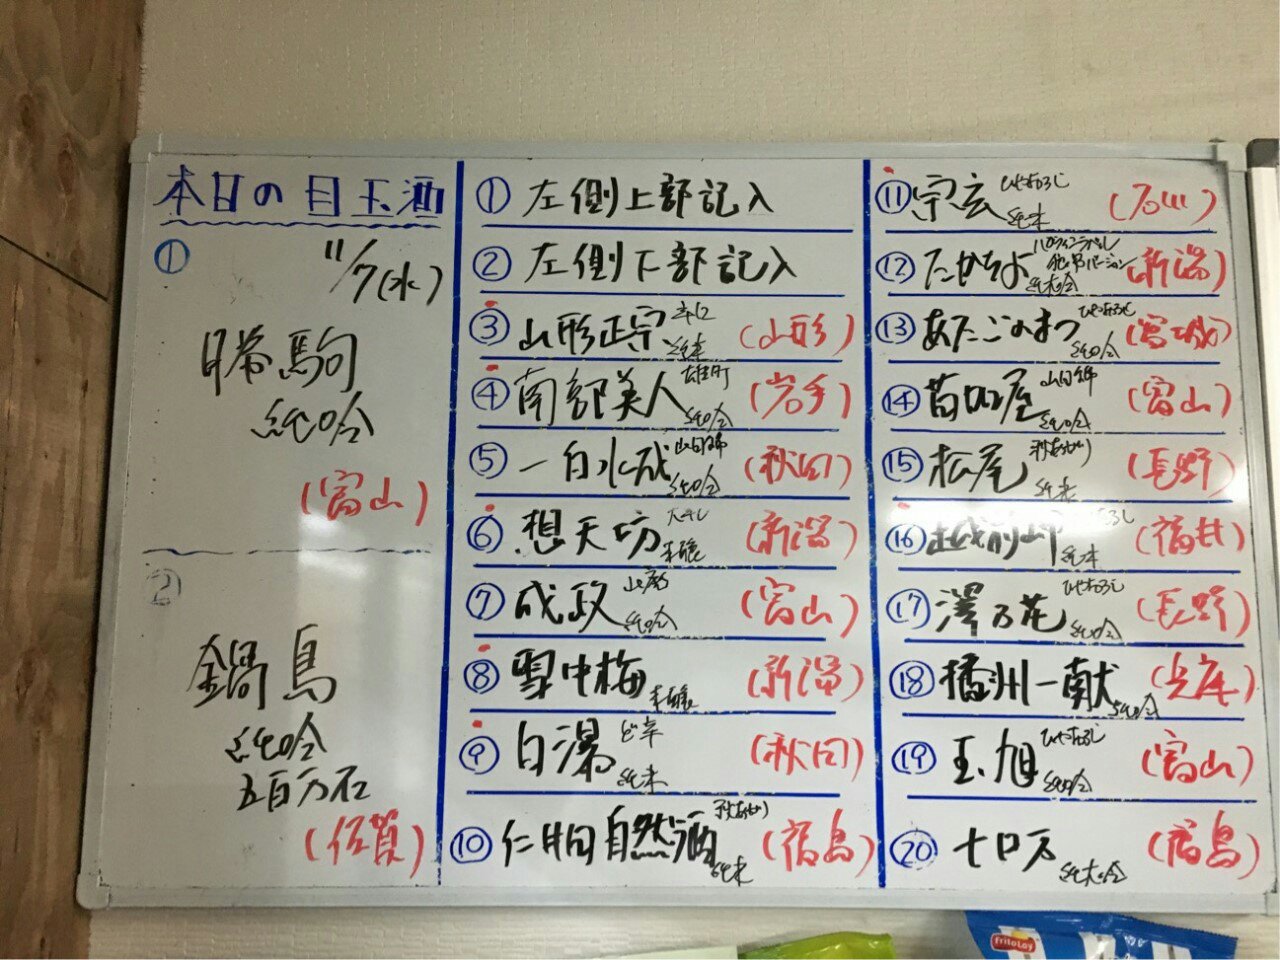 本日の目玉酒
① 11/7(水)
勝駒
純吟
(富山)
②
鍋島
純吟
五百万石
(佐賀)
① 左側上部記入
② 左側下部記入
③ 山形正宗 辛口 純米 (山形)
④ 南部美人 雄町 純吟 (岩手)
⑤ 一白水成 山田錦 純吟 (秋田)
⑥ 想天坊 大辛口 本醸 (新潟)
⑦ 成政 山廃 純吟 (富山)
⑧ 雪中梅 本醸 (新潟)
⑨ 白瀑 ど辛 純米 (秋田)
⑩ 仁井田自然酒 秋あがり 純米 (福島)
⑪ 宗玄 ひやおろし 純米 (石川)
⑫ たかちよ ハロウィンラベル 純大吟 (新潟)
⑬ あたごのまつ ひやおろし 純吟 (宮城)
⑭ 苗加屋 山田錦 純吟 (富山)
⑮ 松尾 秋あがり 純米 (長野)
⑯ 越前岬 純米 (福井)
⑰ 澤乃花 ひやおろし 純吟 (長野)
⑱ 播州一献 純吟 (兵庫)
⑲ 玉旭 ひやおろし 純吟 (富山)
⑳ 七ロ万 純大吟 (福島)
fritolay